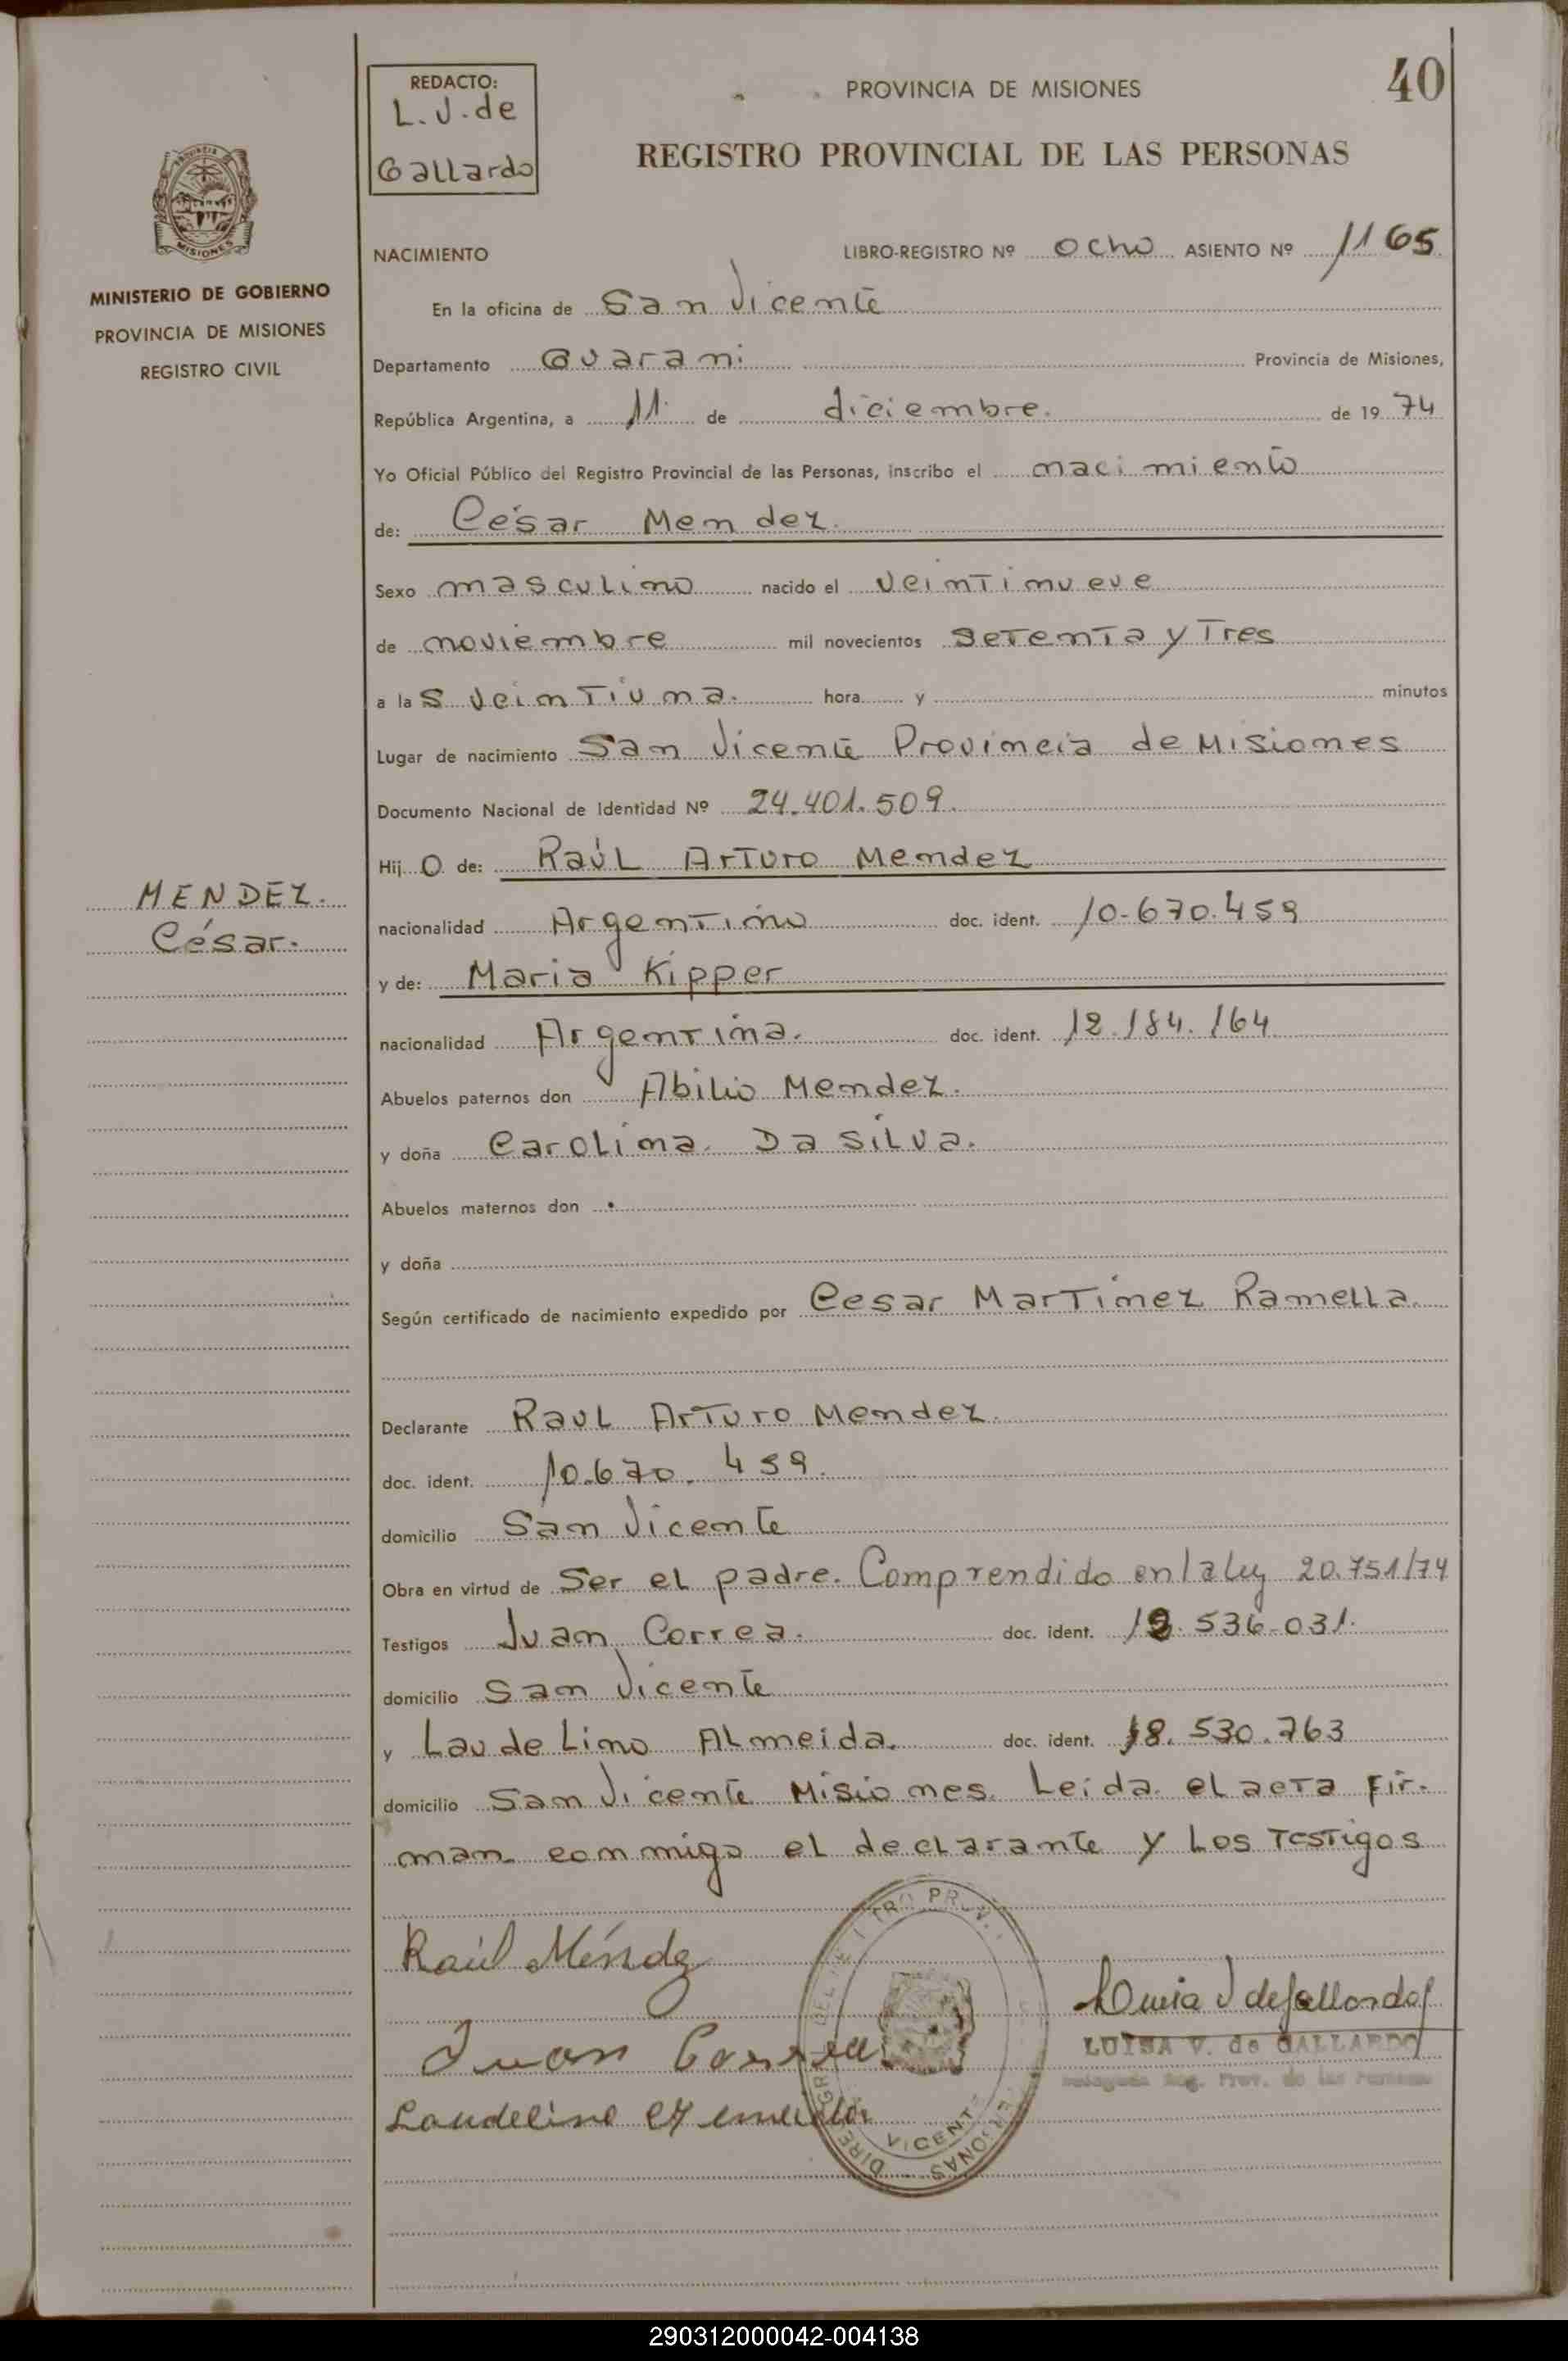 40
REDACTO:
L. J. de
Gallardo
PROVINCIA DE MISIONES
REGISTRO PROVINCIAL DE LAS PERSONAS
MISIONES
MINISTERIO DE GOBIERNO
PROVINCIA DE MISIONES
REGISTRO CIVIL
MENDEZ.
César.
NACIMIENTO LIBRO-REGISTRO Nº ocho ASIENTO Nº 1165
En la oficina de San Vicente
Departamento Guarani Provincia de Misiones,
República Argentina, a 11 de diciembre. de 19 74
Yo Oficial Público del Registro Provincial de las Personas, inscribo el nacimiento
de: César Mendez.
Sexo masculino nacido el veintinueve
de noviembre mil novecientos setenta y Tres
a las veintiuna. hora y minutos
Lugar de nacimiento San Vicente Provincia de Misiones
Documento Nacional de Identidad Nº 24.401.509.
Hijo de: Raúl Arturo Mendez
nacionalidad Argentino doc. ident. 10-670.459
y de: Maria Kipper
nacionalidad Argentina. doc. ident. 12.184.164
Abuelos paternos don Abilio Mendez.
y doña Carolina Da Silva.
Abuelos maternos don
y doña
Según certificado de nacimiento expedido por Cesar Martinez Ramella.
Declarante Raul Arturo Mendez.
doc. ident. 10.670.459.
domicilio San Vicente
Obra en virtud de Ser el padre. Comprendido en la ley 20.751/74
Testigos Juan Correa. doc. ident. 536-031.
domicilio San Vicente
y Laudelino Almeida. doc. ident. 18.530.763
domicilio San Vicente Misiones. Leida el acta fir-
man conmigo el declarante y los Testigos
Raúl Méndez
Juan Correa
Laudelino
DIRE GR DEL TRO PROV. ONAS
VICENT
LUISA V. de GALLARDO
Delegada Reg. Prov. de las Personas
290312000042-004138